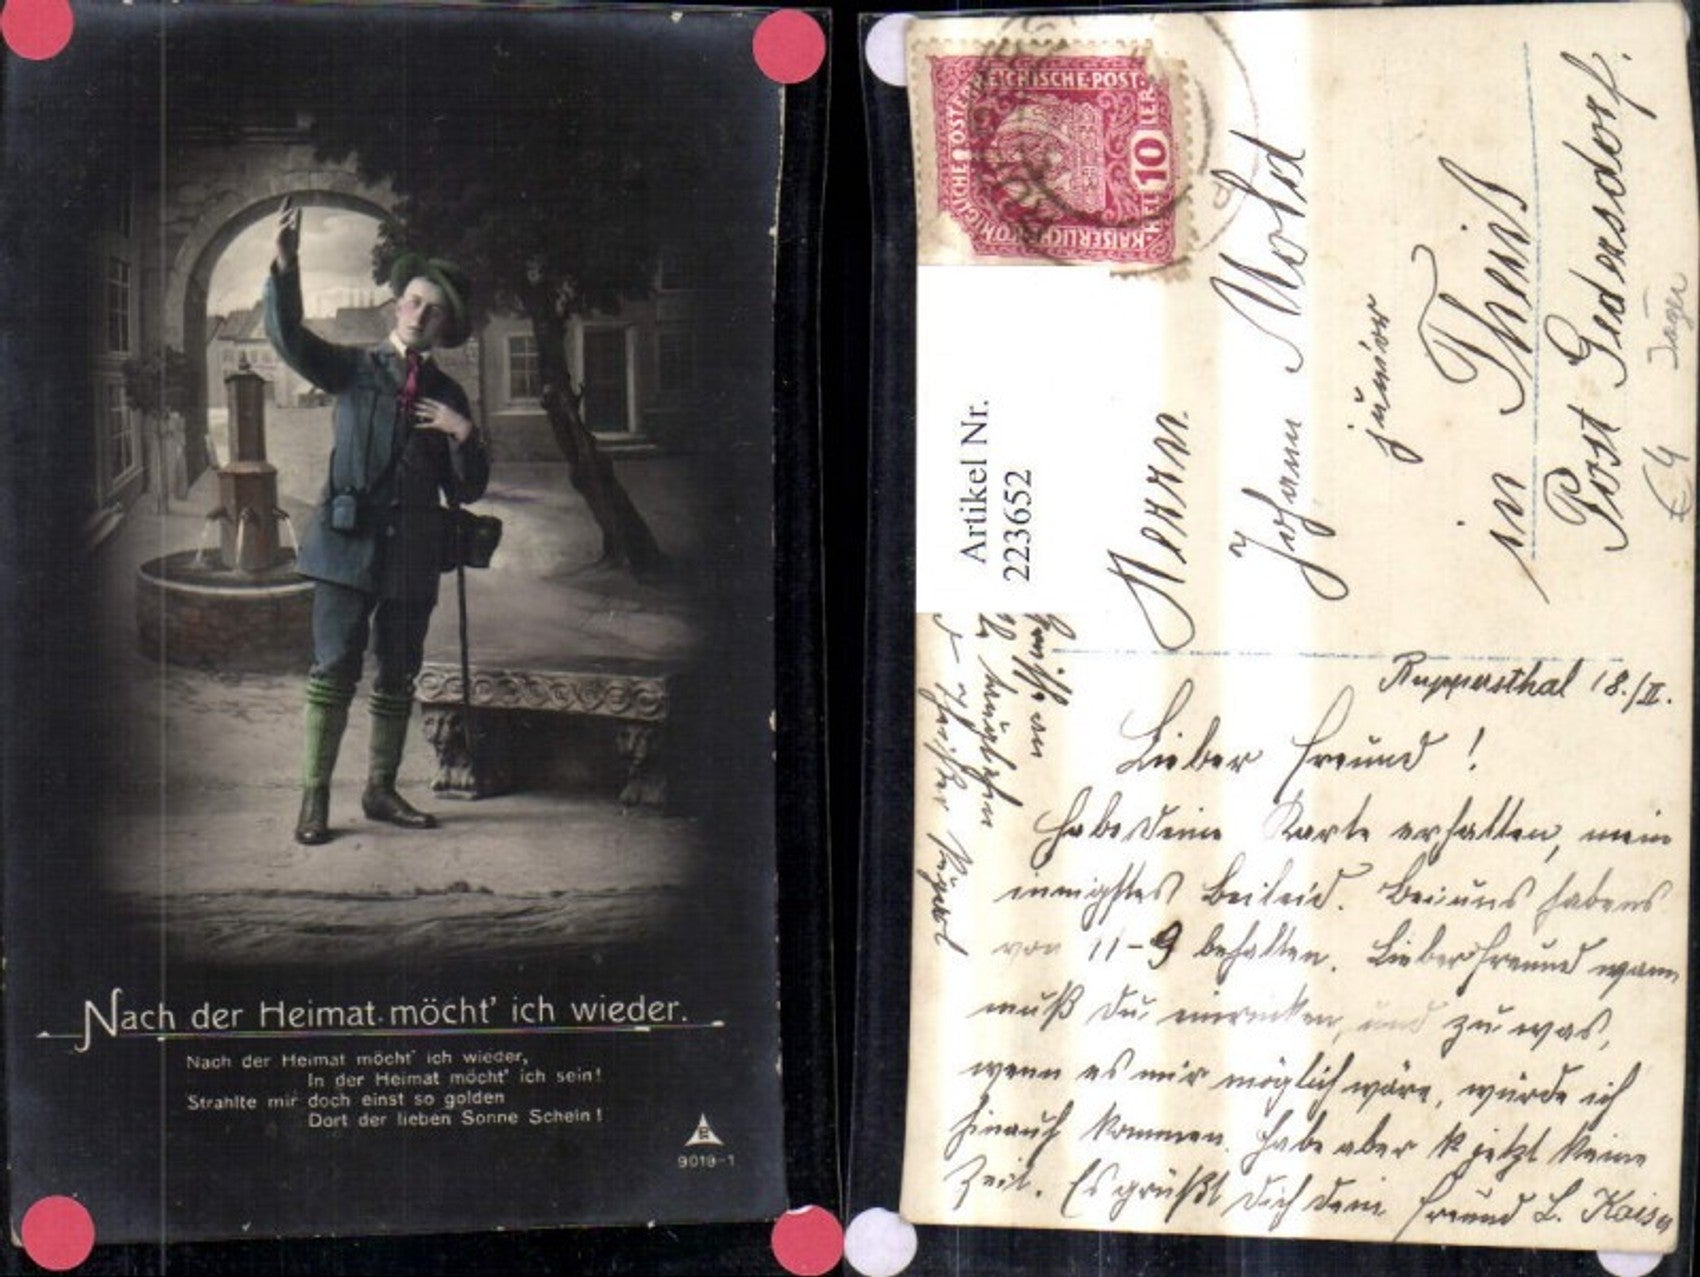 Nach der Heimat möcht' ich wieder.
Nach der Heimat möcht' ich wieder,
In der Heimat möcht' ich sein!
Strahlte mir doch einst so golden
Dort der lieben Sonne Schein!
E
9019-1
REICHISCHE·POST·
KAISERLICHKÖNIGLICHE ÖSTER
10
HELLER
Artikel Nr.
223652
Herrn
Johann
junior
in Theiß
Post Gedersdorf.
Jäger
€4
Ruppersthal 18./II.
Lieber Freund!
Habe deine Karte erhalten, mein
innigstes Beileid. Bei uns habens
von 11-9 behalten. Lieber Freund wann
mußt du einrücken, und zu was,
wenn es mir möglich wäre, würde ich
hinauf kommen. Habe aber jetzt keine
Zeit. Es grüßt dich dein Freund L. Kaiser